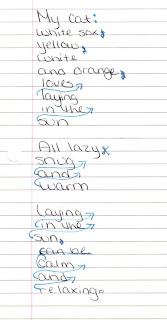 My cat:
white sox,
yellow,
white
and orange,
loves
laying
in the
sun
All lazy
snug
and
warm
Laying
in the
sun,
can be
calm
and
relaxing.